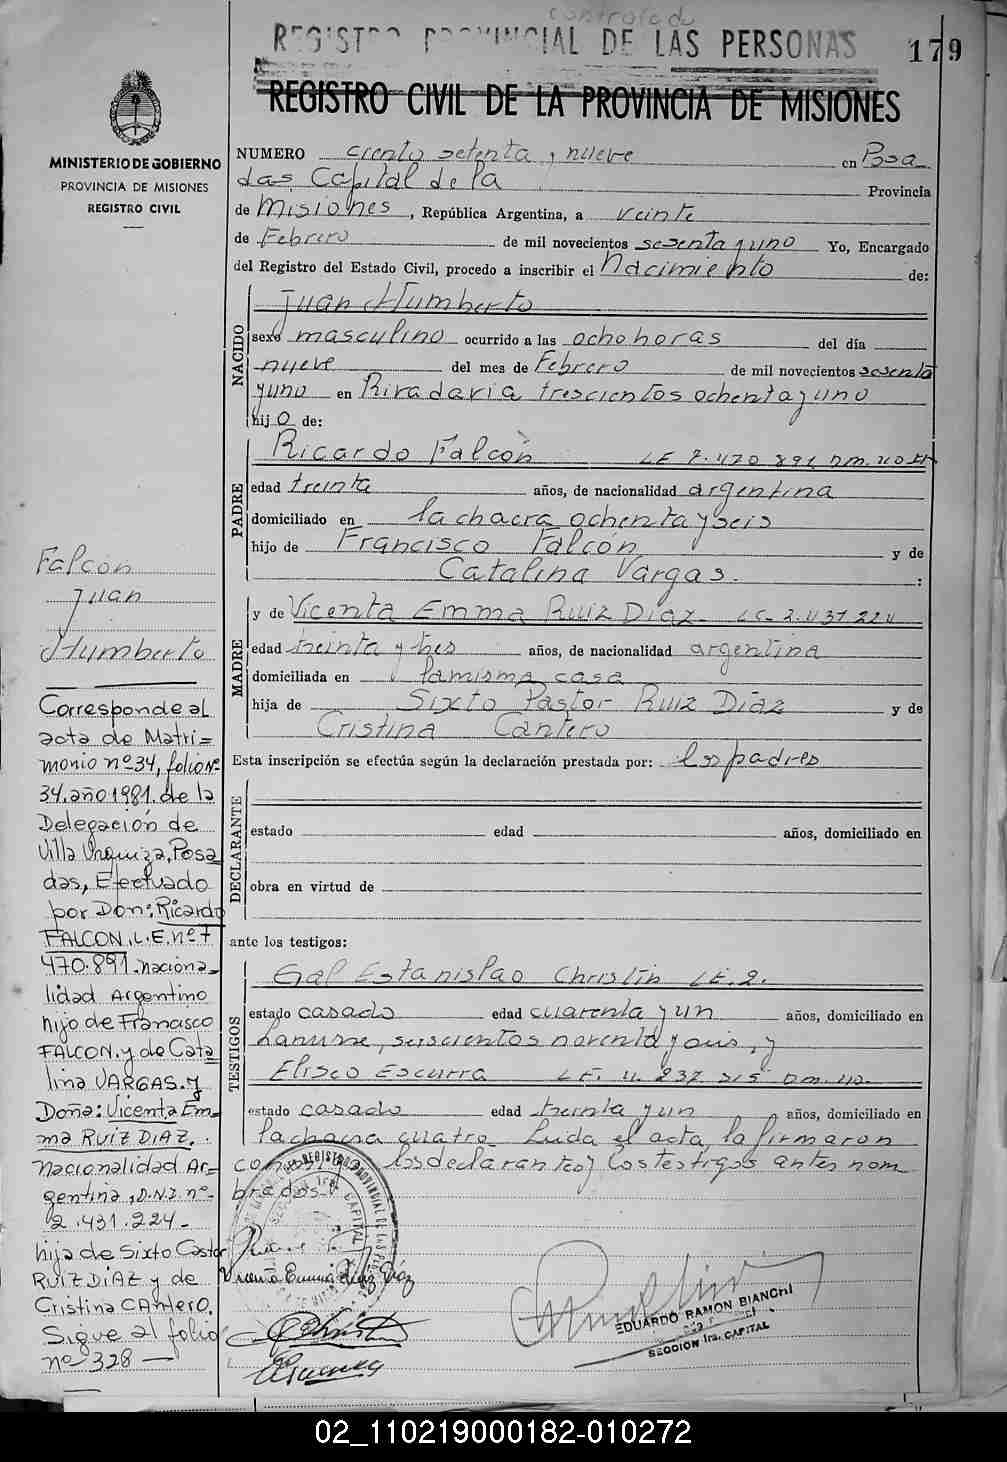 controlado
REGISTRO PROVINCIAL DE LAS PERSONAS
179
REGISTRO CIVIL DE LA PROVINCIA DE MISIONES
MINISTERIO DE GOBIERNO
PROVINCIA DE MISIONES
REGISTRO CIVIL
NUMERO ciento setenta y nueve en Posa
das, Capital de la Provincia
de Misiones, República Argentina, a veinte
de Febrero de mil novecientos sesenta y uno Yo, Encargado
del Registro del Estado Civil, procedo a inscribir el Nacimiento de:
NACIDO
Juan Humberto
sexo masculino ocurrido a las ocho horas del día
nueve del mes de Febrero de mil novecientos sesenta
y uno en Rivadavia trescientos ochenta y uno
hijo de:
PADRE
Ricardo Falcón LE 7.470.891 DM.
edad treinta años, de nacionalidad argentina
domiciliado en la chacra ochenta y seis
hijo de Francisco Falcón y de
Catalina Vargas. :
MADRE
y de Vicenta Emma Ruiz Diaz LC. 2.431.224
edad treinta y tres años, de nacionalidad argentina
domiciliada en la misma casa
hija de Sixto Pastor Ruiz Diaz y de
Cristina Cantero
Esta inscripción se efectúa según la declaración prestada por: los padres
DECLARANTE
estado edad años, domiciliado en
obra en virtud de
ante los testigos:
TESTIGOS
Gal Estanislao Christin LE. 2.
estado casado edad cuarenta y un años, domiciliado en
Lanusse, seiscientos noventa y seis, y
Eliseo Escurra LE. 237. 315 DM.
estado casado edad treinta y un años, domiciliado en
la chacra cuatro. Leida el acta, la firmaron
los declarantes y los testigos antes nom
brados.
Vicenta Emma Ruiz Díaz
EDUARDO RAMON BIANCHI
SECCION 1ra. CAPITAL
Falcón
Juan
Humberto
Corresponde al
acta de Matri=
monio nº 34, folio Nº
34. año 1981. de la
Delegación de
Villa Urquiza, Posa
das, Efectuado
por Don: Ricardo
FALCON, L.E. nº 7
470.891. naciona=
lidad Argentino
hijo de Francisco
FALCON. y de Cata
lina VARGAS. y
Doña: Vicenta Em=
ma RUIZ DIAZ.
nacionalidad Ar=
gentina, D.N.I. nº
2.431.224-
hija de Sixto Castor
RUIZ DIAZ y de
Cristina CANTERO.
Sigue al folio
nº 328 —
02_110219000182-010272